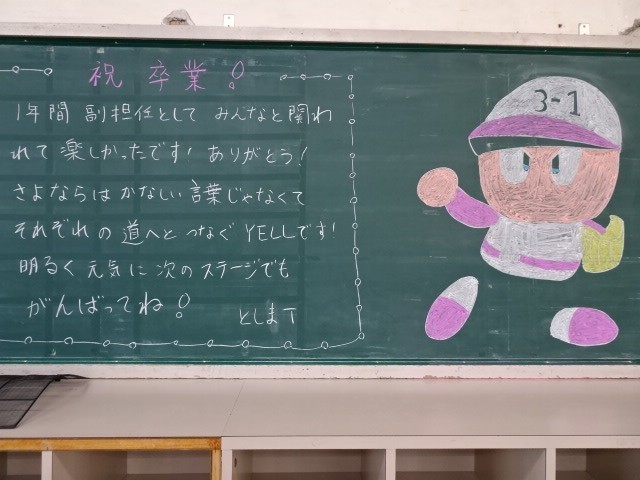 祝 卒業!
1年間 副担任として みんなと関わ
れて 楽しかったです! ありがとう!
さよならは かない言葉じゃなくて
それぞれの 道へと つなぐ YELLです!
明るく 元気に 次の ステージでも
がんばってね!
としまT
3-1